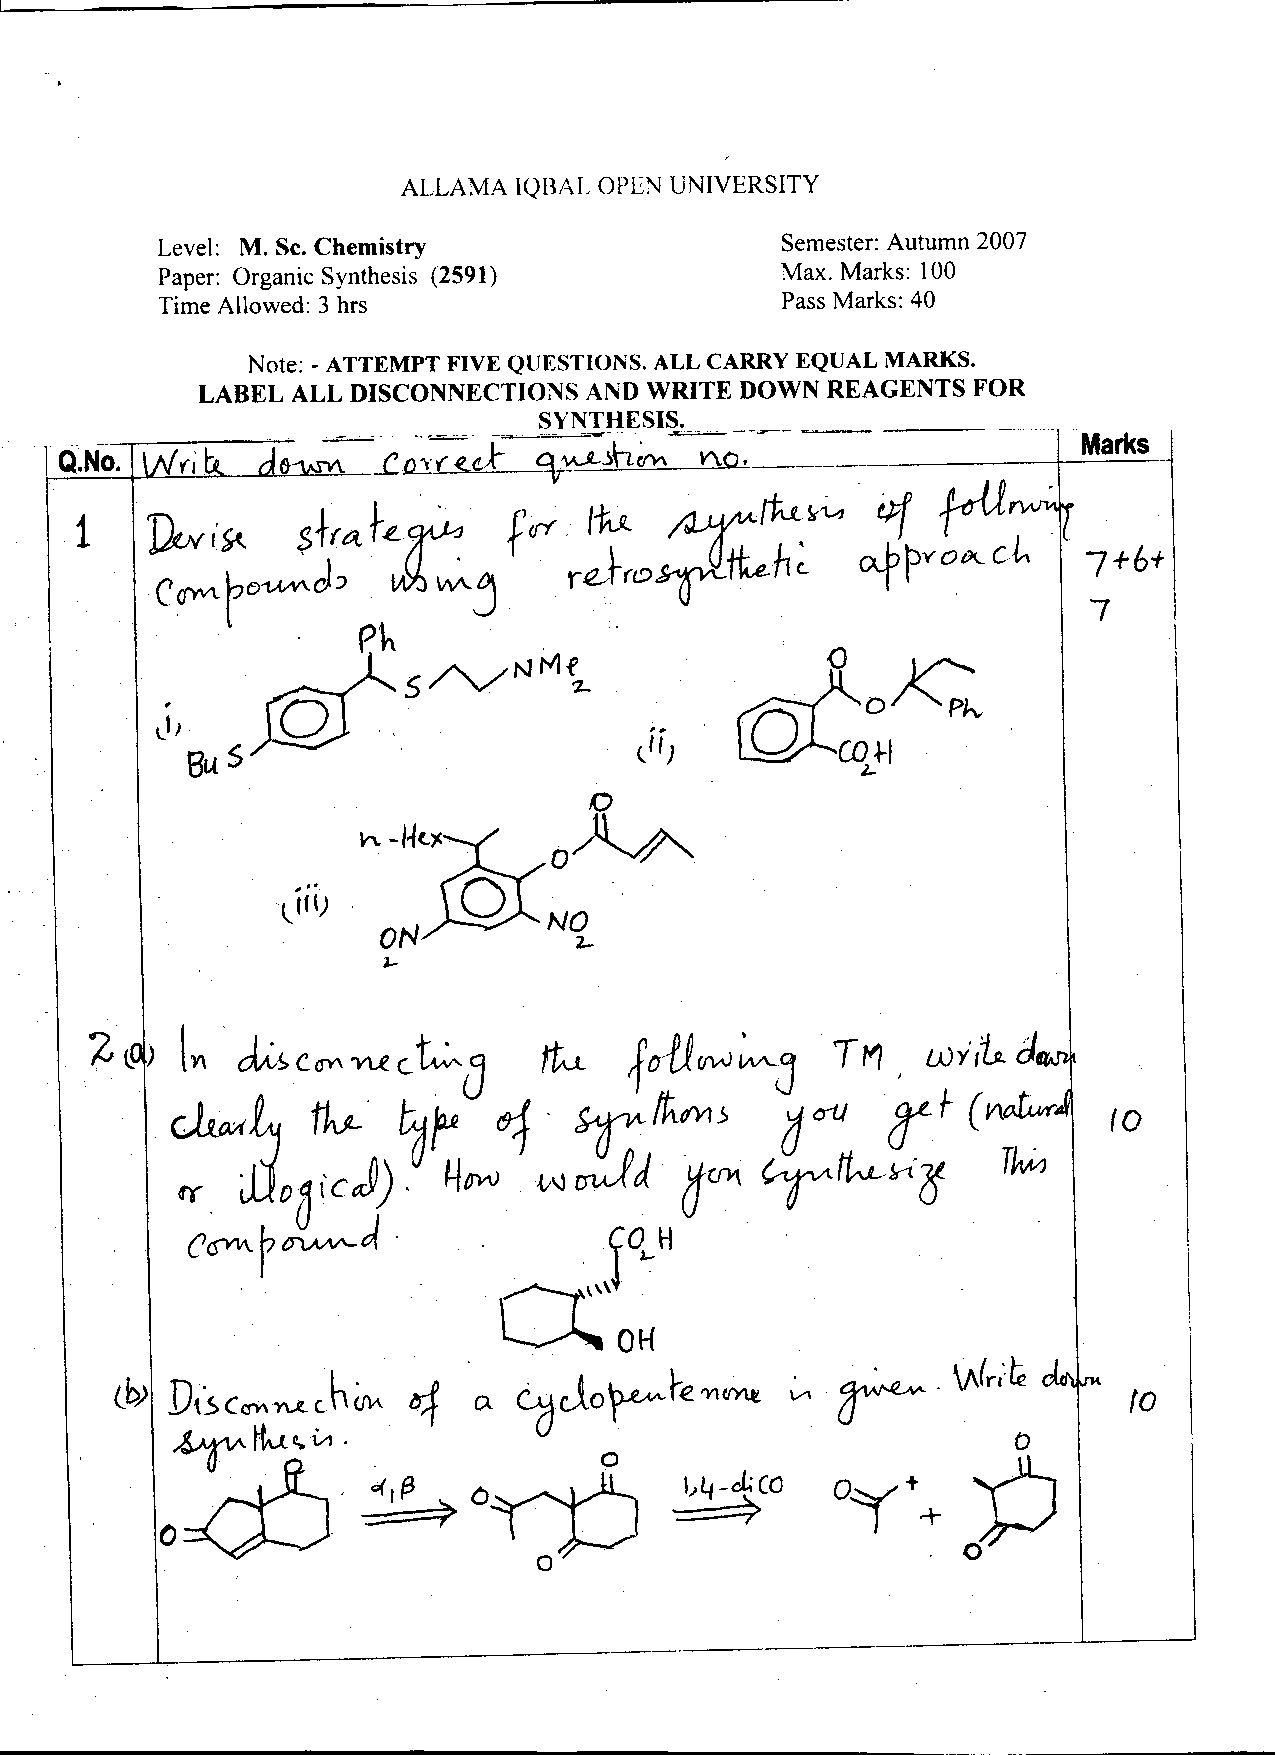 ALLAMA IQBAL OPEN UNIVERSITY
Level: M. Sc. Chemistry
Semester: Autumn 2007
Paper: Organic Synthesis (2591)
Max. Marks: 100
Time Allowed: 3 hrs
Pass Marks: 40
Note: - ATTEMPT FIVE QUESTIONS. ALL CARRY EQUAL MARKS.
LABEL ALL DISCONNECTIONS AND WRITE DOWN REAGENTS FOR
SYNTHESIS.
Q.No. Write down correct question no. Marks
1 Devise strategies for the synthesis of following
compounds using retrosynthetic approach 7+6+
7
Ph
S NMe2
(i) BuS
(ii) O
O Ph
CO2H
O
n-Hex
O
(iii)
O2N NO2
2(a) In disconnecting the following TM, write down
clearly the type of synthons you get (natural 10
or illogical). How would you synthesize This
compound.
CO2H
OH
(b) Disconnection of a cyclopentenone is given. Write down 10
synthesis.
O O O
O α,β O 1,4-diCO O + +
O O